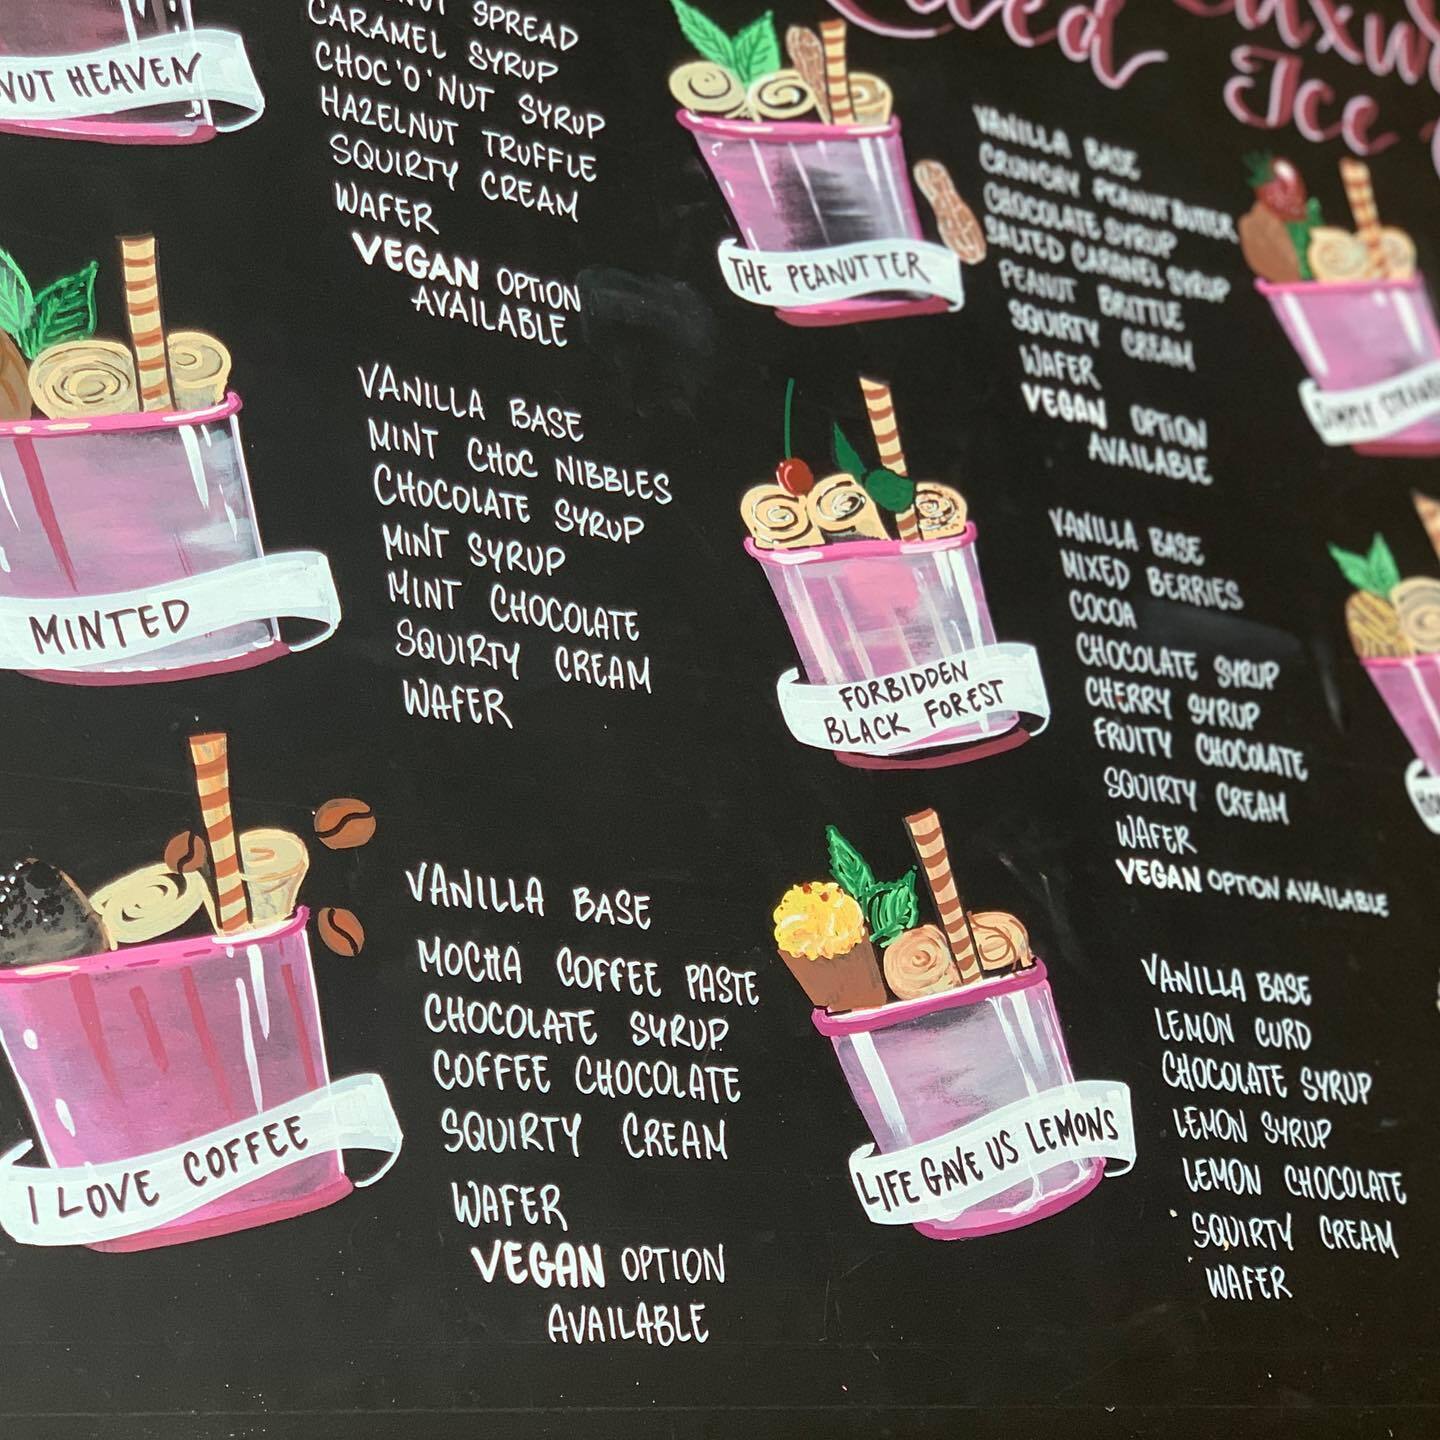 SPREAD
CARAMEL SYRUP
CHOC'O'NUT SYRUP
HAZELNUT TRUFFLE
SQUIRTY CREAM
WAFER
VEGAN OPTION
AVAILABLE
NUT HEAVEN
VANILLA BASE
MINT CHOC NIBBLES
CHOCOLATE SYRUP
MINT SYRUP
MINT CHOCOLATE
SQUIRTY CREAM
WAFER
MINTED
VANILLA BASE
MOCHA COFFEE PASTE
CHOCOLATE SYRUP
COFFEE CHOCOLATE
SQUIRTY CREAM
WAFER
VEGAN OPTION
AVAILABLE
I LOVE COFFEE
Ice
VANILLA BASE
CRUNCHY PEANUT BUTTER
CHOCOLATE SYRUP
SALTED CARAMEL SYRUP
PEANUT BRITTLE
SQUIRTY CREAM
WAFER
VEGAN OPTION
AVAILABLE
THE PEANUTTER
VANILLA BASE
MIXED BERRIES
COCOA
CHOCOLATE SYRUP
CHERRY SYRUP
FRUITY CHOCOLATE
SQUIRTY CREAM
WAFER
VEGAN OPTION AVAILABLE
FORBIDDEN
BLACK FOREST
VANILLA BASE
LEMON CURD
CHOCOLATE SYRUP
LEMON SYRUP
LEMON CHOCOLATE
SQUIRTY CREAM
WAFER
LIFE GAVE US LEMONS
SIMPLY